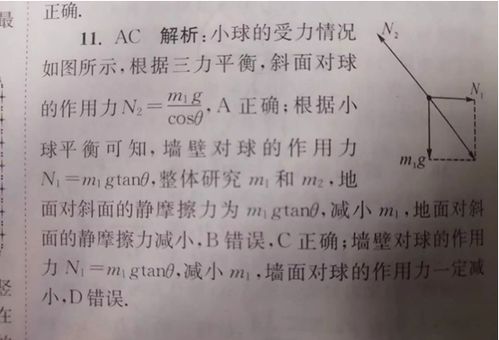 最
正确.
11. AC 解析:小球的受力情况
如图所示,根据三力平衡,斜面对球
的作用力N₂=m₁g/cosθ,A 正确;根据小
球平衡可知,墙壁对球的作用力
N₁=m₁gtanθ,整体研究 m₁ 和 m₂,地
面对斜面的静摩擦力为 m₁gtanθ,减小 m₁,地面对斜
面的静摩擦力减小,B 错误,C 正确;墙壁对球的作用
力 N₁=m₁gtanθ,减小 m₁,墙面对球的作用力一定减
小,D 错误.
N₂
N₁
m₁g
竖
在